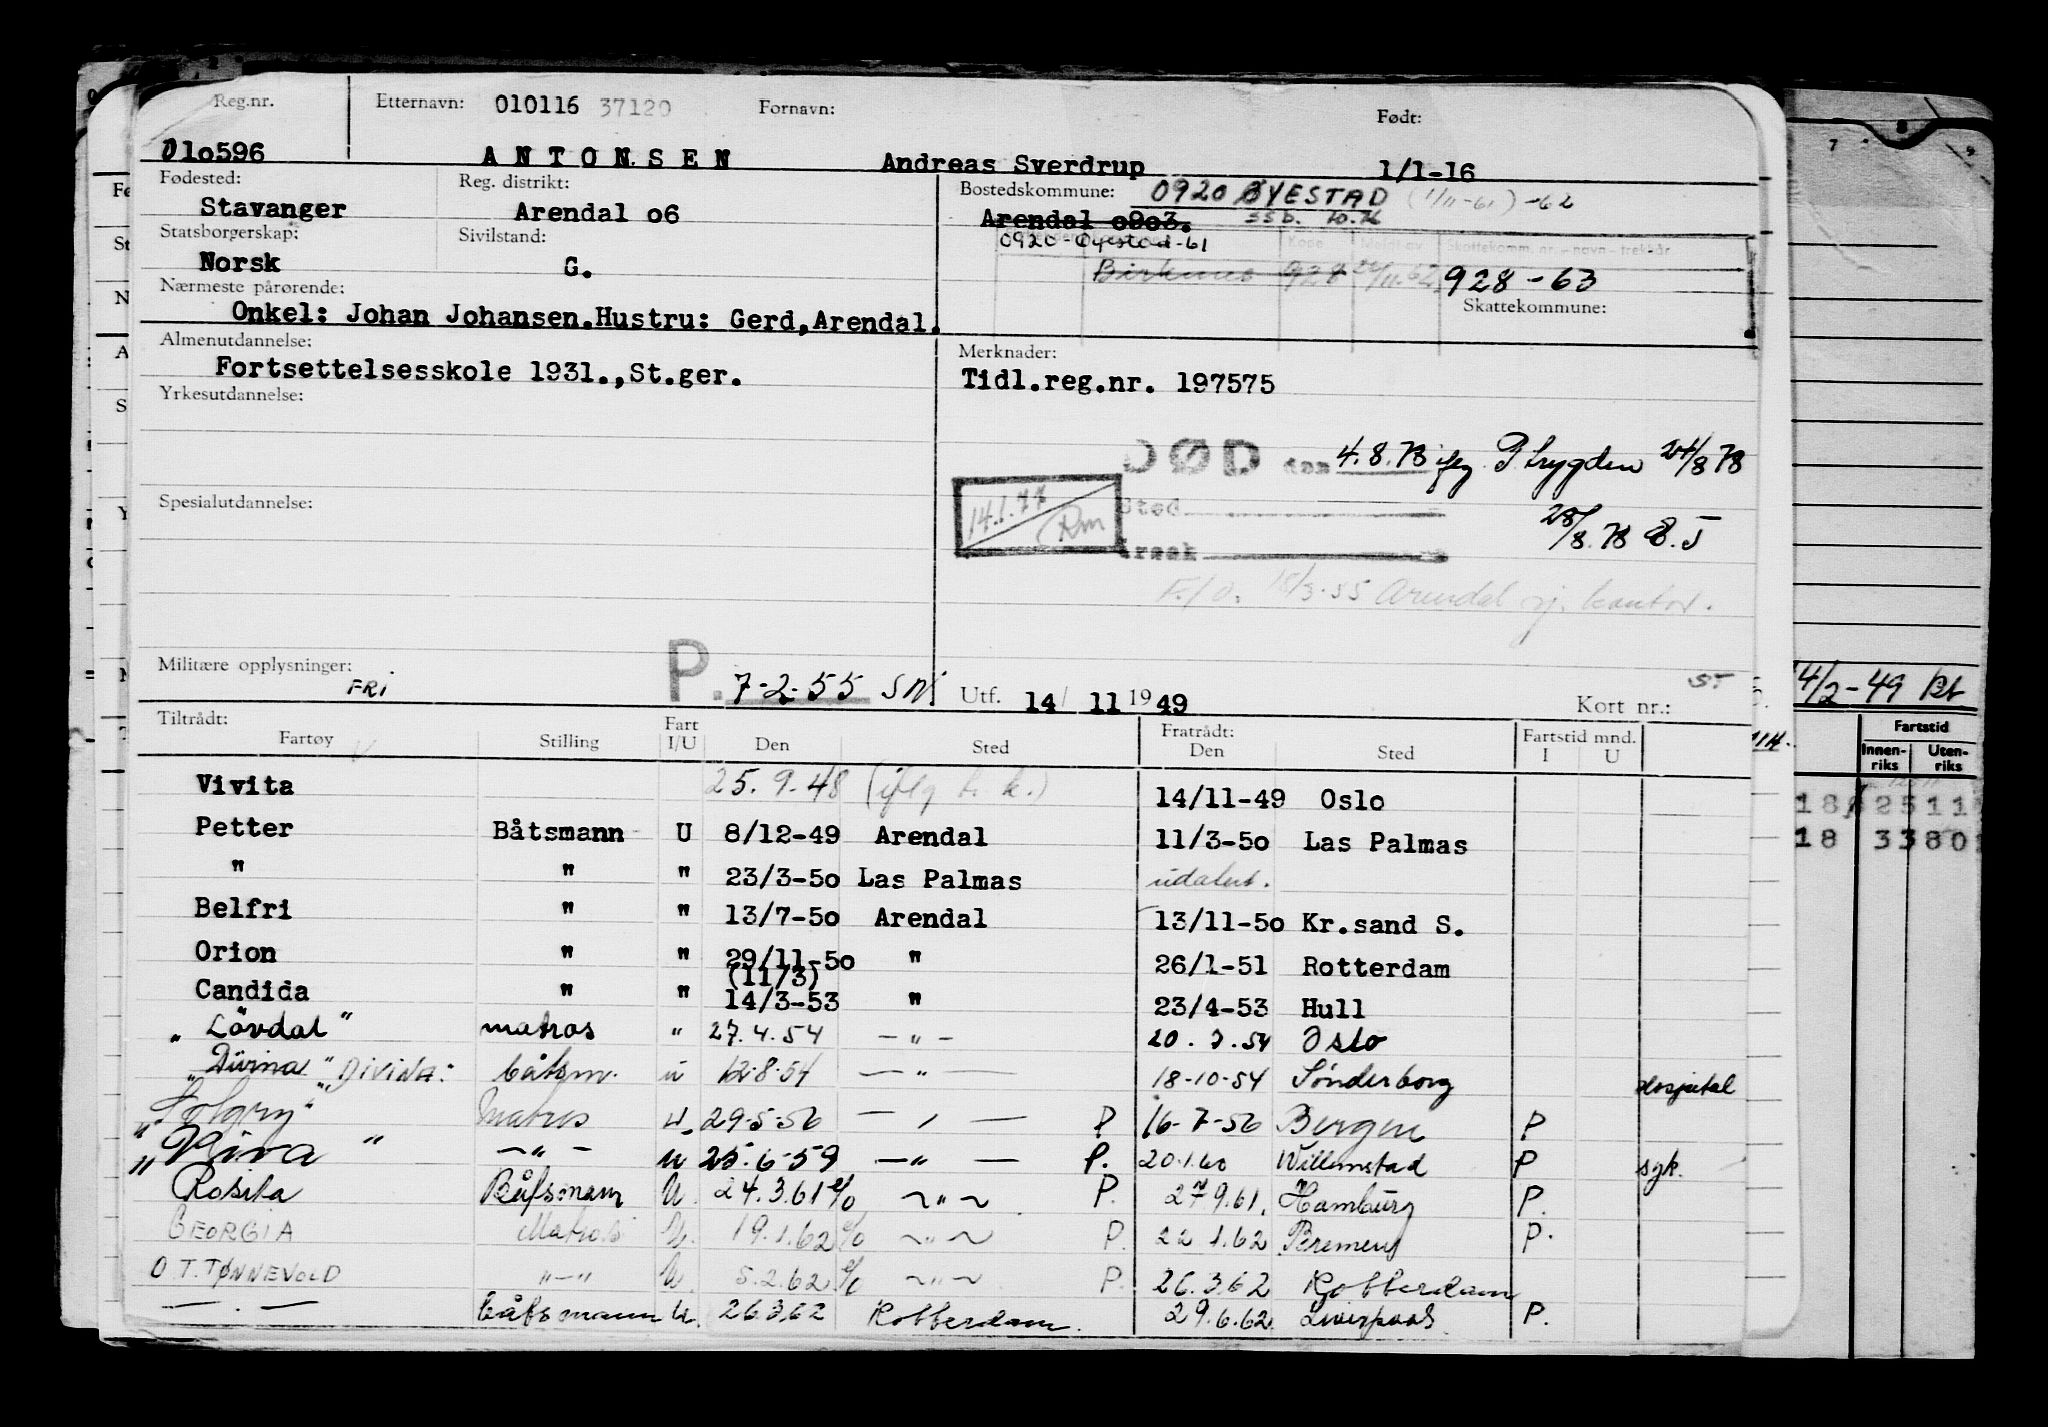 Reg.nr. Etternavn: 010116 37120 Fornavn: Født:
010596 ANTONSEN Andreas Sverdrup 1/1-16
Fødested: Reg. distrikt: Bostedskommune: 0920 ØYESTAD (1/11-61) -62
Stavanger Arendal 06 Arendal 0903. SSB. 10.76
Statsborgerskap: Sivilstand: 0920 Øyestad-61 Kode Skattekomm. nr. - navn - trekkår
Norsk G. Birkenes 928 928-63
Nærmeste pårørende: Skattekommune:
Onkel: Johan Johansen.Hustru: Gerd,Arendal.
Almenutdannelse: Merknader:
Fortsettelsesskole 1931.,St.ger. Tidl.reg.nr. 197575
Yrkesutdannelse:
DØD den 4.8.78 iflg P trygden 24/8 78
Spesialutdannelse: 14.1.77 Rm Sted 28/8.78 E.J
Årsak
F./O. 15/3-55 Arendal sj. kontor.
Militære opplysninger: FRI P. 7-2-55 Utf. 14/ 11 1949 Kort nr.: 14/2-49
Tiltrådt: Fratrådt:
Fartøy Stilling Fart I/U Den Sted Den Sted Fartstid mnd. I U
Vivita 25.9.48 (iflg h. k.) 14/11-49 Oslo
Petter Båtsmann U 8/12-49 Arendal 11/3-50 Las Palmas
" " " 23/3-50 Las Palmas udatert.
Belfri " " 13/7-50 Arendal 13/11-50 Kr.sand S.
Orion " " 29/11-50 " 26/1-51 Rotterdam
(11/3)
Candida " " 14/3-53 " 23/4-53 Hull
"Lövdal" matros " 27.4.54 -"- 20.7.54 Oslo
"Divina" DIVINA: båtsm. u 12-8-54 -"- 18-10-54 Sønderborg Hospital
"Solgry" Matros u. 29-5-56 - , - P 16-7-56 Bergen P
"Viva" -"- u 25.6-59 -"- P. 20.1.60 Willemstad P syk.
Rosita Båtsmann U 24.3.61 % ~"~ P. 27.9.61. Hamburg P.
GEORGIA Matros U. 19.1.62 % ~"~ P. 22 1.62 Bremen P.
O.T.TØNNEVOLD "-" U. 5.2.62 % ~"~ P. 26.3.62 Rotterdam
- . - båtsmann U. 26.3.62 Rotterdam. 29.6.62 Liverpool P.
Fartstid
Innen-riks Uten-riks
18 2511
18 3380